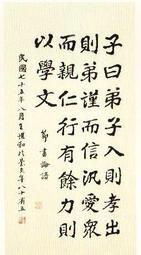 子曰弟子入則孝出
則弟謹而信汎愛衆
而親仁行有餘力則
以學文
節書論語
民國七十五年八月王愷和於年八十有五